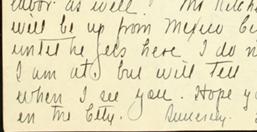 favor as well. Mr Kitche
will be up from Mexico Ci
until he gets here I do n
I am at, but will tell
when I see you. Hope yo
in the City. Sincerely